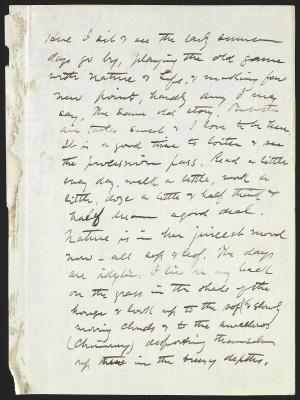 Here I sit & see the early summer
days go by, playing the old game
with nature & life, & making few
new points, hardly any I may
say, the same old story. But the
air tastes sweet & I love to be here.
It is a good time to loiter & see
the procession pass. Read a little
every day, walk a little, work a
little, doze a little & half think &
half dream a good deal.
Nature is in her juiciest mood
now - all sap & leaf. The days
are idyllic. I lie on my back
on the grass in the shade of the
house & look up to the soft & slowly
moving clouds & to the swallows
(Chimney) disporting themselves
up there in the breezy depths.